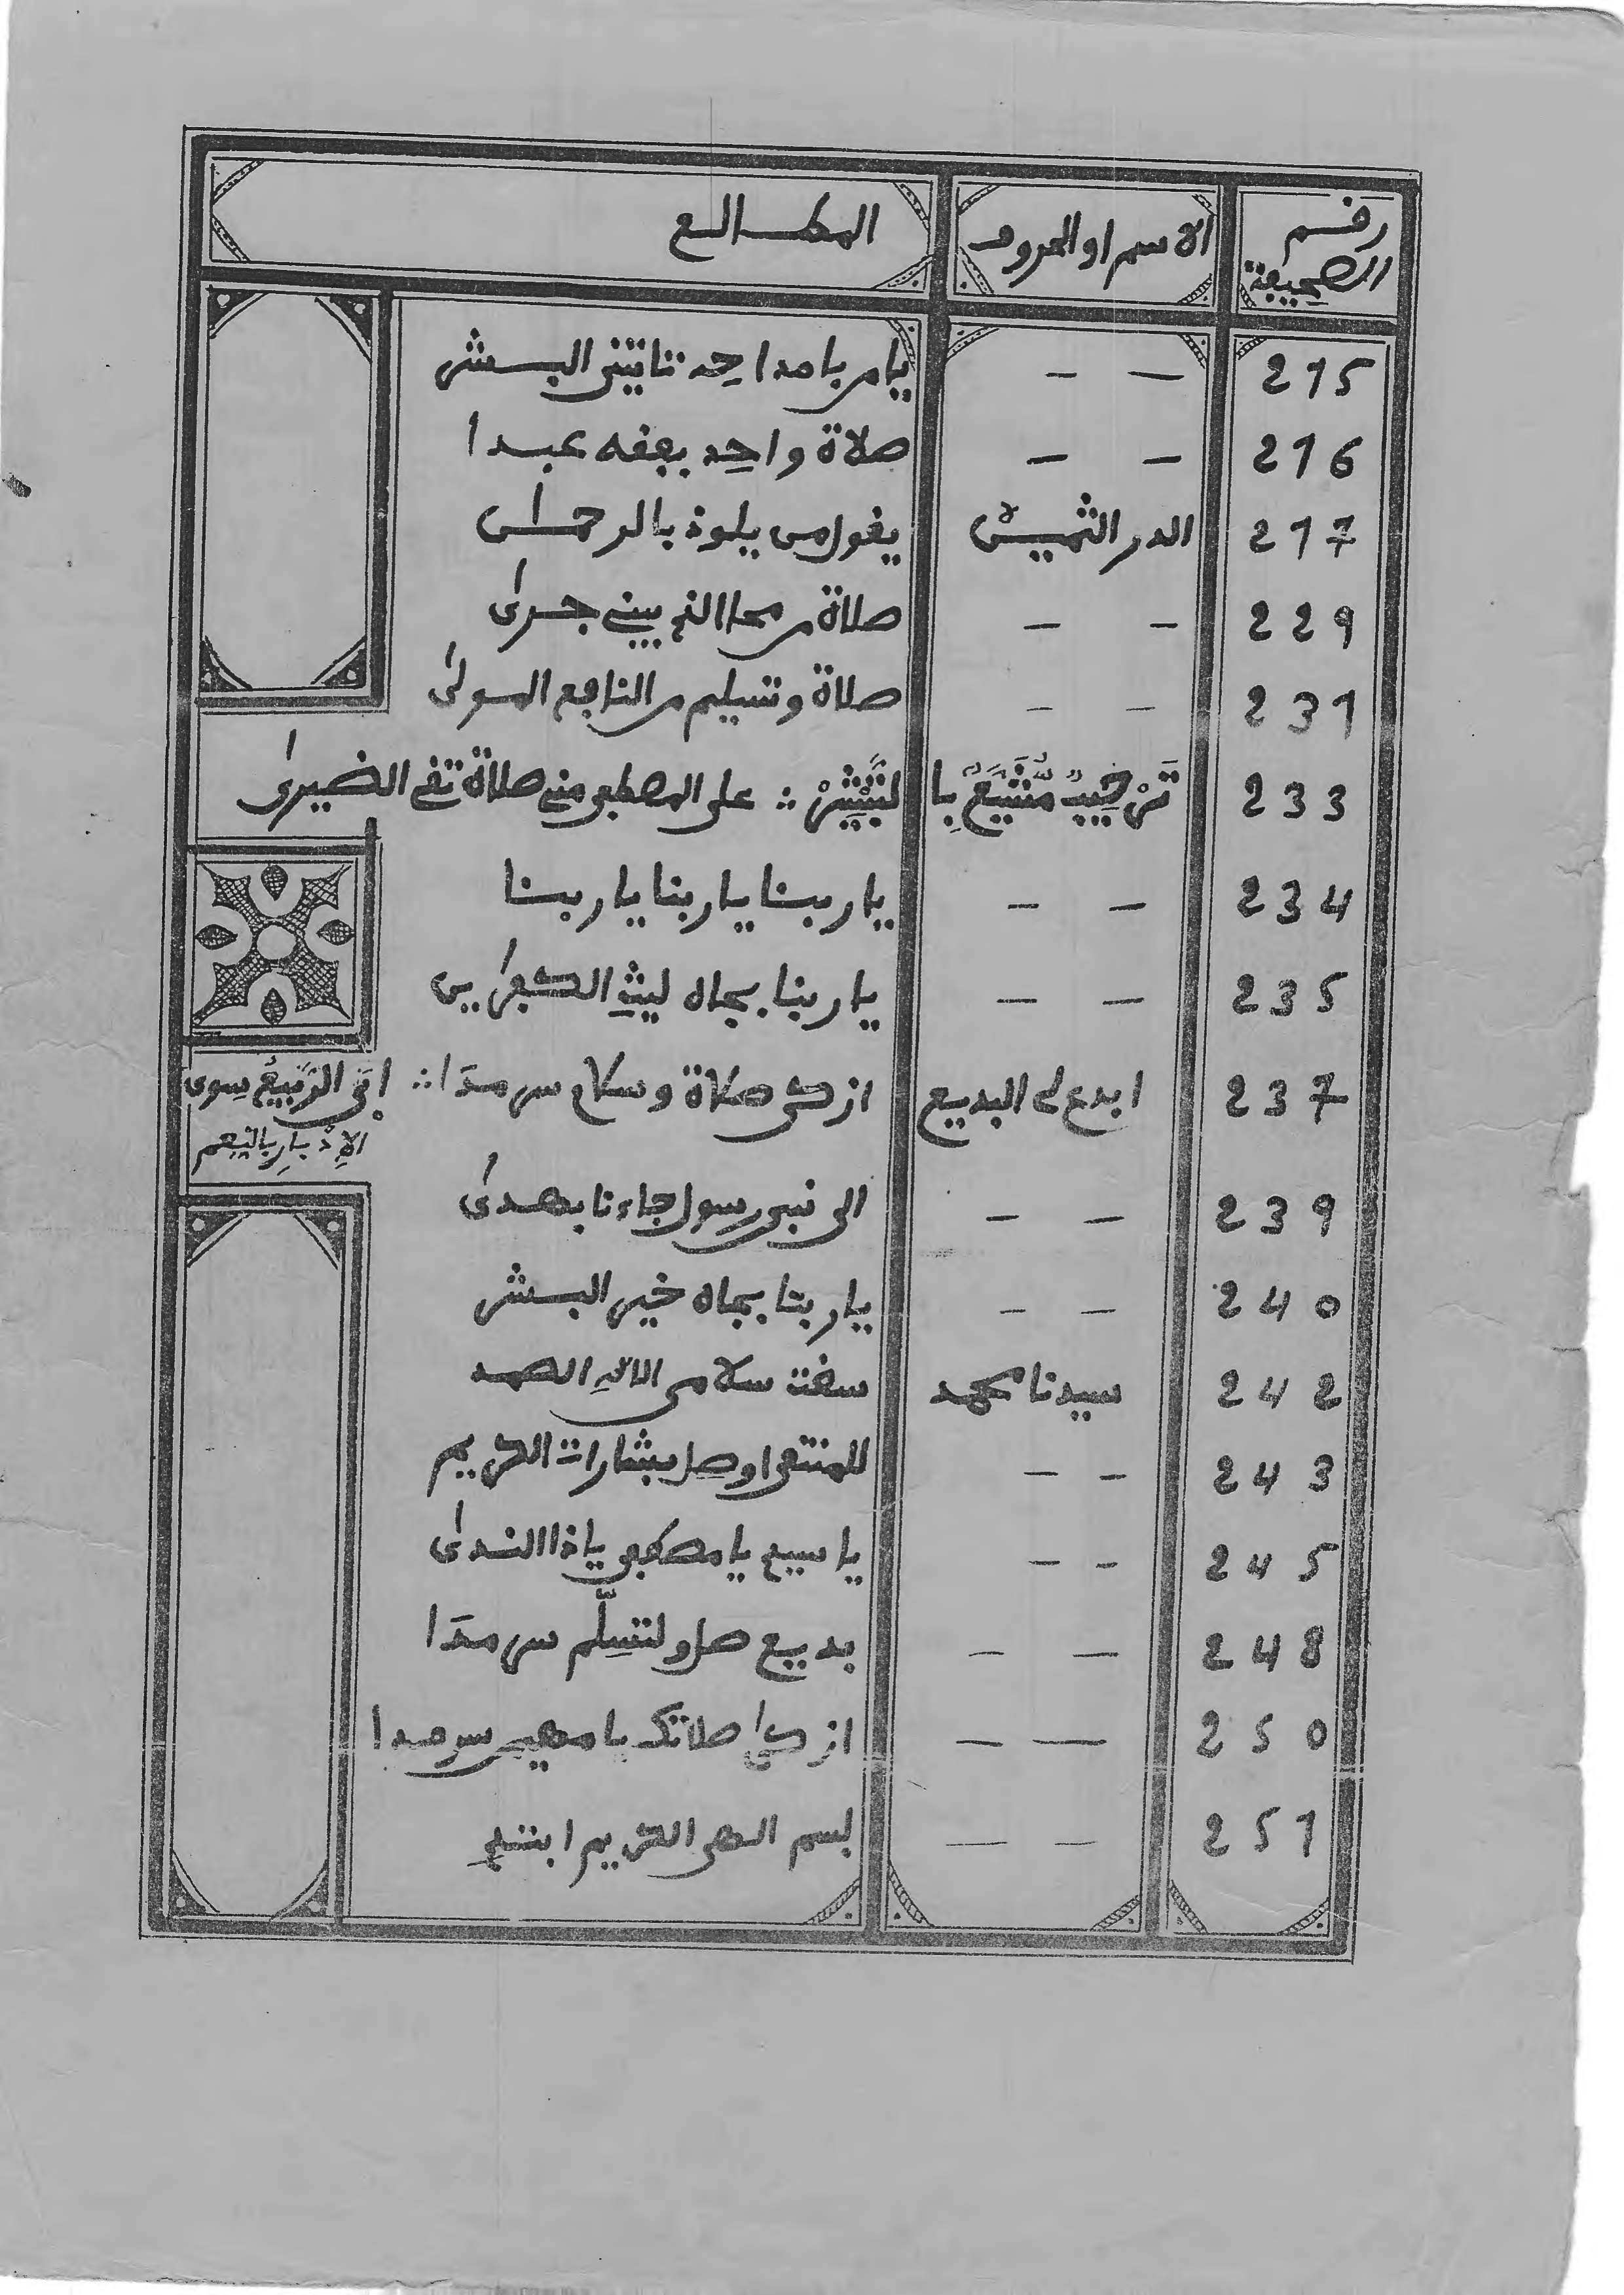 رقم الصحيفة الاسم او الحروف المطالع
215 — — يا من بامداحه تاتي البشر
216 — — صلاة واحد بعقه عبدا
217 الدر الثمين يقول من يلوذ بالرحمان
229 — — صلاة من محا الذ بيني جرى
231 — — صلاة وتسليم من النافع المولى
233 تَرْحِيبٌ مُشَيَّعٌ بِالتَّبْشِيرْ ∴ على المصطفى مني صلاة تقي الضيرى
234 — — يا ربنا يا ربنا يا ربنا
235 — — يا ربنا بجاه ليث الكبرايى
237 ابدع لي البديع ازكى صلاة وسلام سرمدا ∴ ابى الرّبيعُ سوى
الاِدْبارِ بالنِعم
239 — — الى نبي رسول جاءنا بهدى
240 — — يا ربنا بجاه خير البشر
242 سيدنا محمد سقت سلامى الالاه الصمد
243 — — للمنتقى اوصل بشارات الكريم
245 — — يا سيد يا مصطفى يا ذا الندى
248 — — بديع صل ولتسلّم سرمدا
250 — — ازكى صلاتك يا مهيمن سرمدا
251 — — بسم الهى الكريم ابتدى